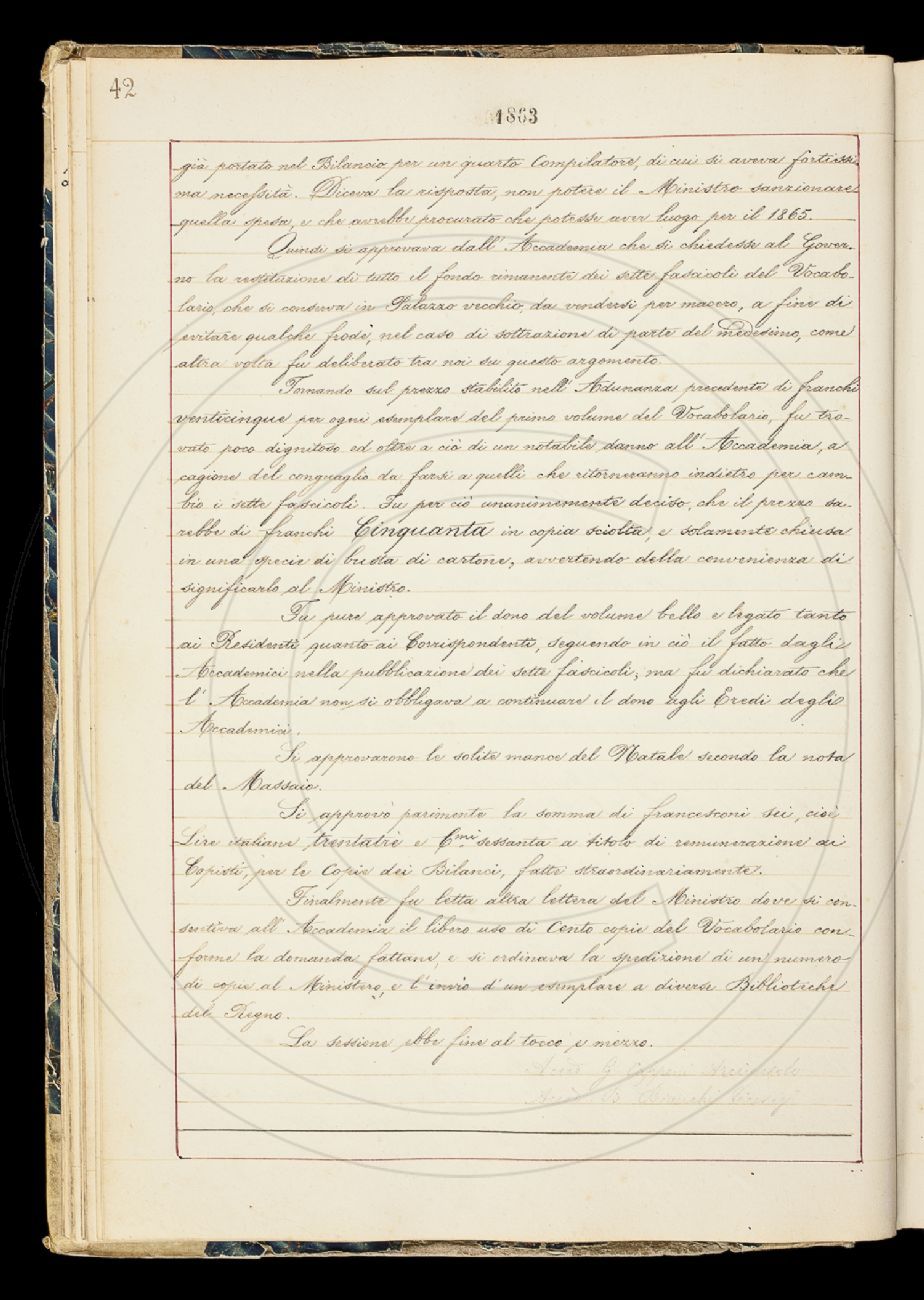 42
1863
già portato nel Bilancio per un quarto Compilatore, di cui si aveva fortissi-
ma necessità. Diceva la risposta, non potere il Ministro sanzionare
quella spesa, e che avrebbe procurato che potesse aver luogo per il 1865.
Quindi si approvava dall' Accademia che si chiedesse al Gover-
no la restituzione di tutto il fondo rimanente dei sette fascicoli del Vocabo-
lario, che si conserva in Palazzo vecchio, da vendersi per macero, a fine di
evitare qualche frode, nel caso di sottrazione di parte del medesimo, come
altra volta fu deliberato tra noi su questo argomento.
Tornando sul prezzo stabilito nell' Adunanza precedente di franchi
venticinque per ogni esemplare del primo volume del Vocabolario, fu tro-
vato poco dignitoso ed oltre a ciò di un notabile danno all' Accademia, a
cagione del conguaglio da farsi a quelli che ritorneranno indietro per cam-
bio i sette fascicoli. Fu per ciò unanimemente deciso, che il prezzo sa-
rebbe di franchi Cinquanta in copia sciolta, e solamente chiusa
in una specie di busta di cartone, avvertendo della convenienza di
significarlo al Ministro.
Fu pure approvato il dono del volume bello e legato tanto
ai Residenti quanto ai Corrispondenti, seguendo in ciò il fatto dagli
Accademici nella pubblicazione dei sette fascicoli; ma fu dichiarato che
l' Accademia non si obbligava a continuare il dono agli Eredi degli
Accademici.
Si approvarono le solite mance del Natale secondo la nota
del Massaio.
Si approvò parimente la somma di francesconi sei, cioè
Lire italiane trentatrè e Cmi sessanta a titolo di remunerazione ai
Copisti, per le Copie dei Bilanci, fatte straordinariamente.
Finalmente fu letta altra lettera del Ministro dove si con-
sentiva all' Accademia il libero uso di Cento copie del Vocabolario con-
forme la domanda fattane, e si ordinava la spedizione di un numero
di copie al Ministero, e l' invio d' un esemplare a diverse Biblioteche
del Regno.
La sessione ebbe fine al tocco e mezzo.
G. Capponi Arciconsolo